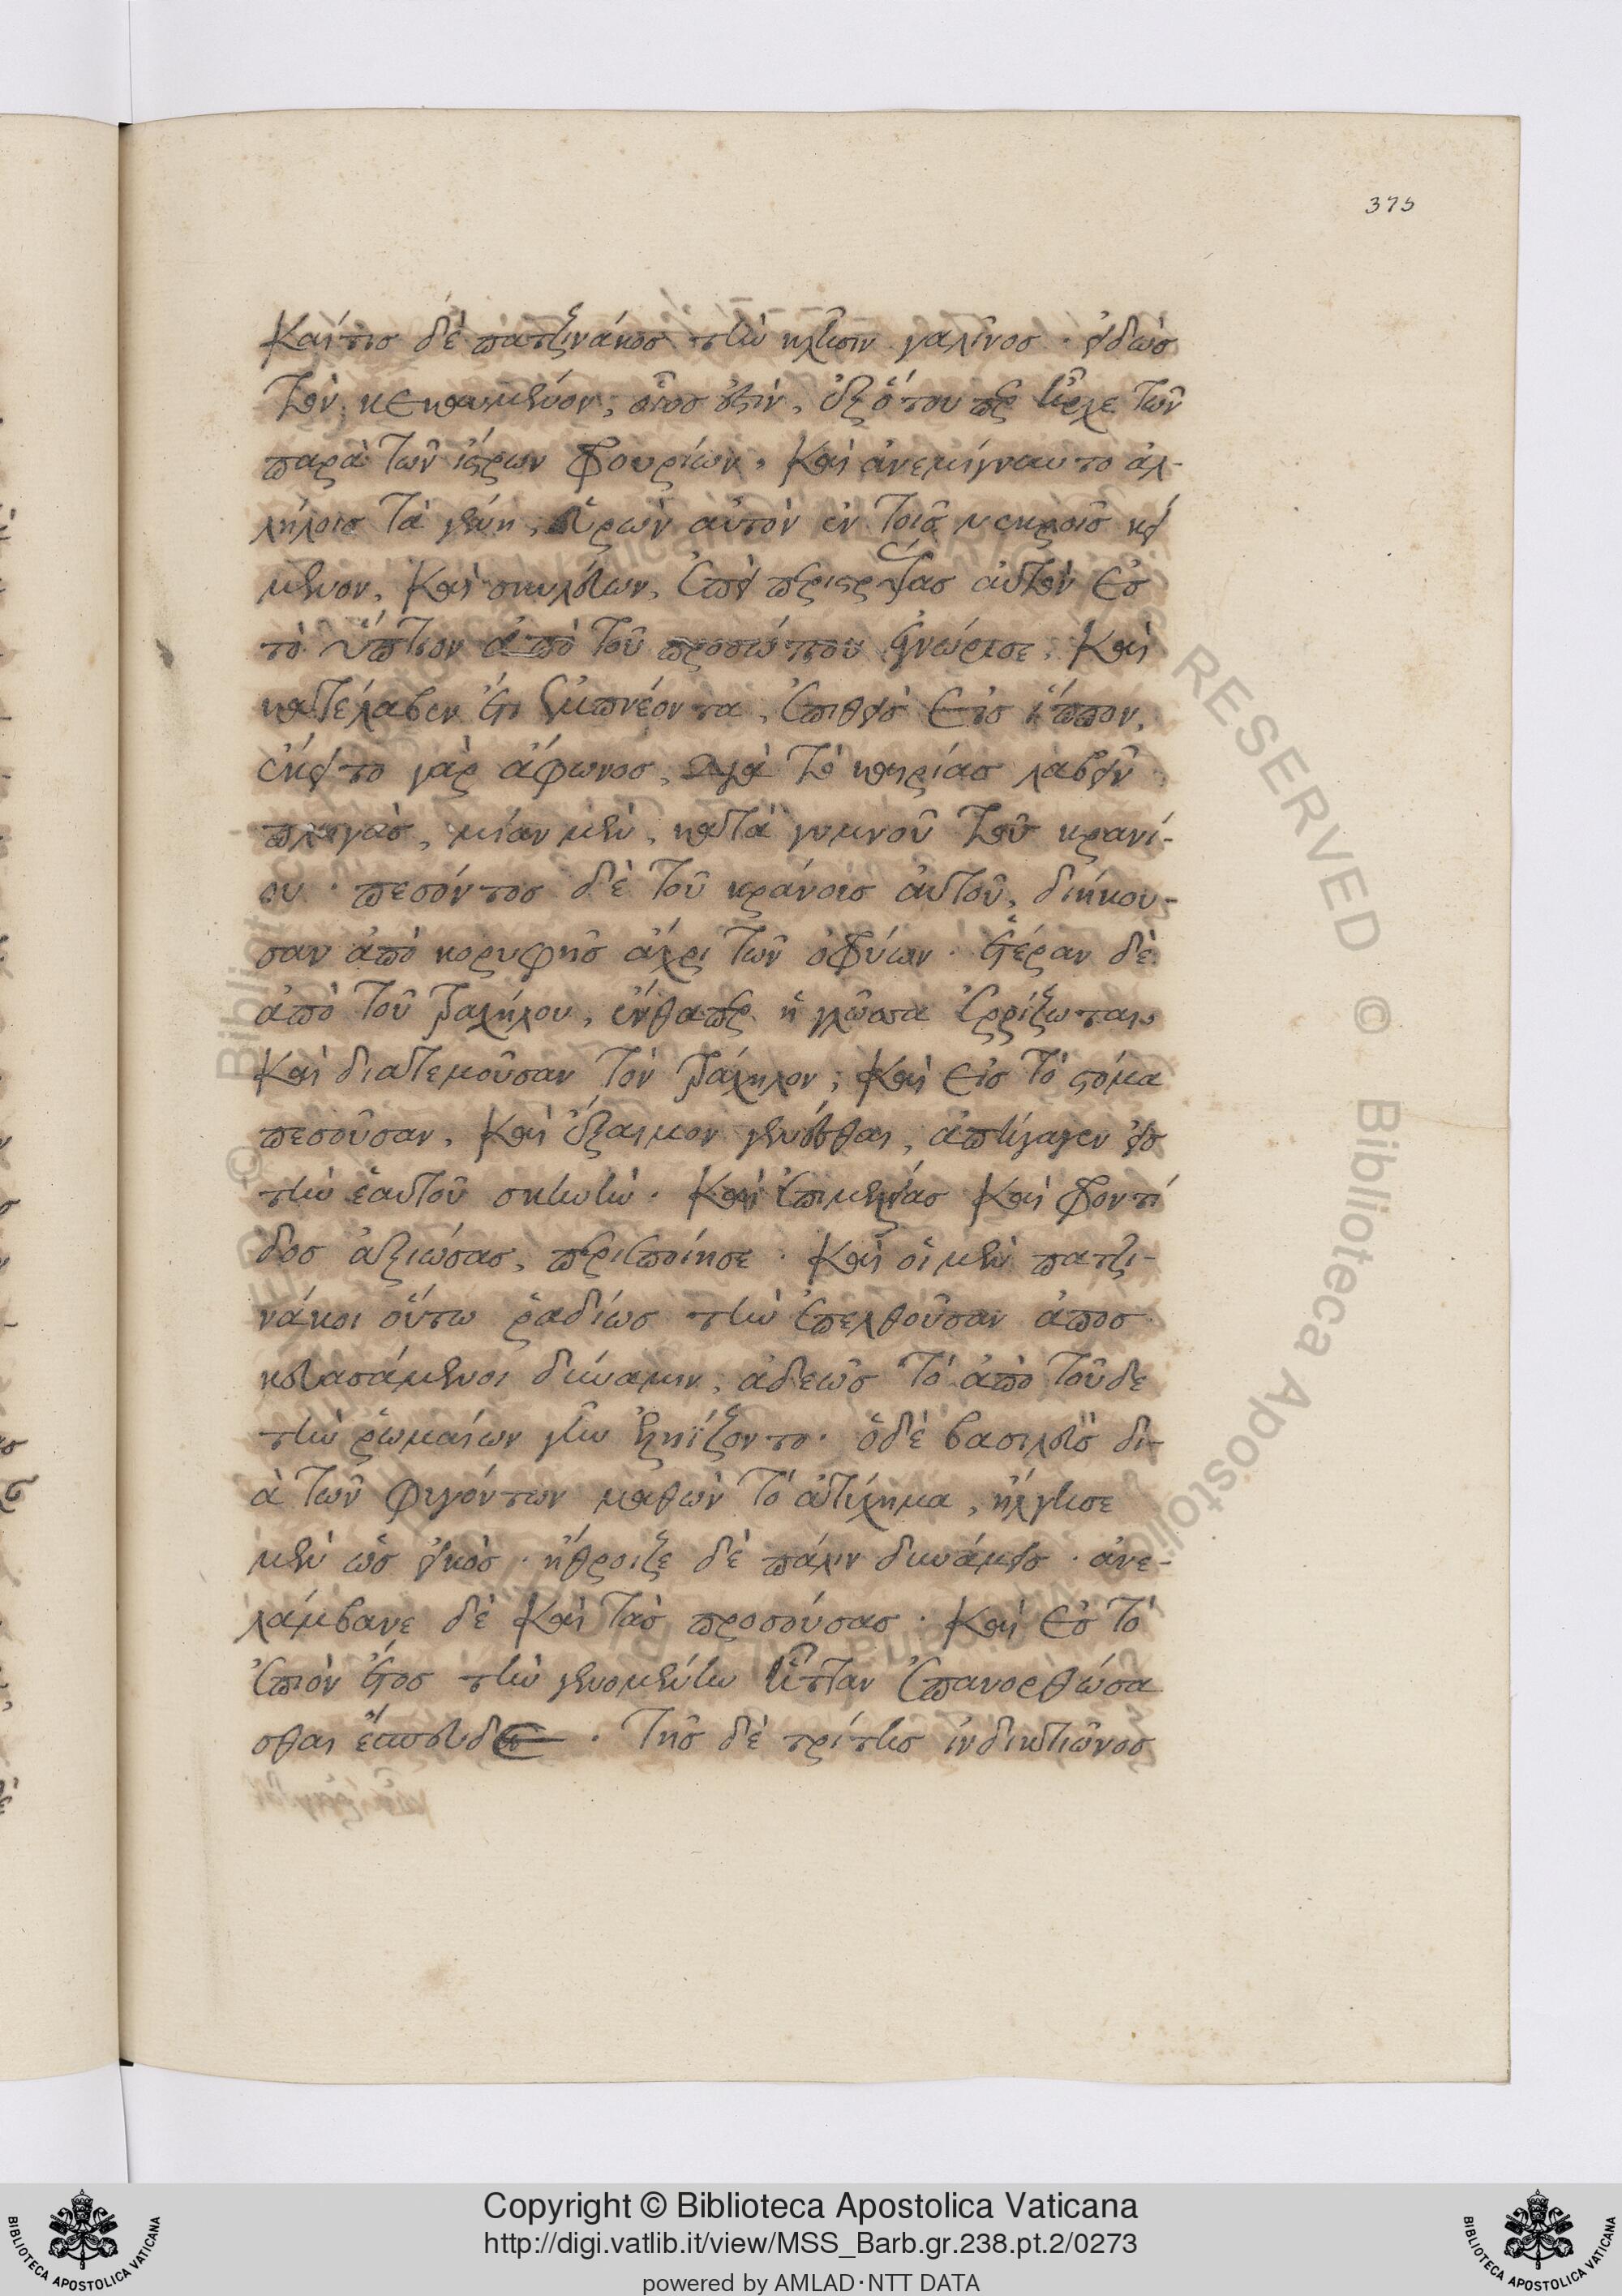 375
Καί τις δὲ πατζινάκος τὴν κλῆσιν γαλῖνος · εἰδὼς
τὸν κεκαυμένον, ὅστις ἐστὶν, ἐξ ὅτου περ ἦρχε τῶν
παρὰ τῶν ἴστρων φρουρίων, καὶ ἀνεμίγνυντο ἀλ-
λήλοις τὰ γένη, εὑρὼν αὐτὸν ἐν τοῖς νεκροῖς κεί
μενον, καὶ σκυλεύων, ἐπεὶ περιστρέψας αὐτὸν εἰς
τὸ ὕπτιον ἀπὸ τοῦ προσώπου ἐγνώρισε, καὶ
κατέλαβεν ἔτι ἐμπνέοντα, ἐπιθεὶς εἰς ἵππον,
ἔκειτο γὰρ ἄφωνος, διὰ τὸ καιρίας λαβεῖν
πληγὰς, μίαν μὲν, κατὰ γυμνοῦ τοῦ κρανί-
ου · πεσόντος δὲ τοῦ κράνους αὐτοῦ, διήκου-
σαν ἀπὸ κορυφῆς ἄχρι τῶν ὀφρύων · ἑτέραν δὲ
ἀπὸ τοῦ τραχήλου, ἔνθαπερ ἡ γλῶσσα ἐρρίζωται,
καὶ διατεμοῦσαν τὸν τράχηλον, καὶ εἰς τὸ στόμα
πεσοῦσαν, καὶ ἔξαιμον γενέσθαι, ἀπήγαγεν εἰς
τὴν ἑαυτοῦ σκηνὴν · καὶ ἐπιμελείας καὶ φροντί
δος ἀξιώσας, περιεποίησε · καὶ οἱ μὲν πατζι-
νάκοι οὕτω ῥαδίως τὴν ἐπελθοῦσαν ἀποσ
κευασάμενοι δύναμιν, ἀδεῶς τὸ ἀπὸ τοῦδε
τὴν ῥωμαίων γῆν ἐληΐζοντο · ὁ δὲ βασιλεὺς δι-
ὰ τῶν φυγόντων μαθὼν τὸ ἀτύχημα, ἤλγησε
μὲν ὡς εἰκὸς · ἤθροιζε δὲ πάλιν δυνάμεις · ἀνε-
λάμβανε δὲ καὶ τὰς προσούσας · καὶ εἰς τὸ
ἐπιὸν ἔτος τὴν γενομένην ἧτταν ἐπανορθώσα
σθαι ἔσπευδε · τῆς δὲ τρίτης ἰνδικτιῶνος
Copyright © Biblioteca Apostolica Vaticana
http://digi.vatlib.it/view/MSS_Barb.gr.238.pt.2/0273
powered by AMLAD·NTT DATA